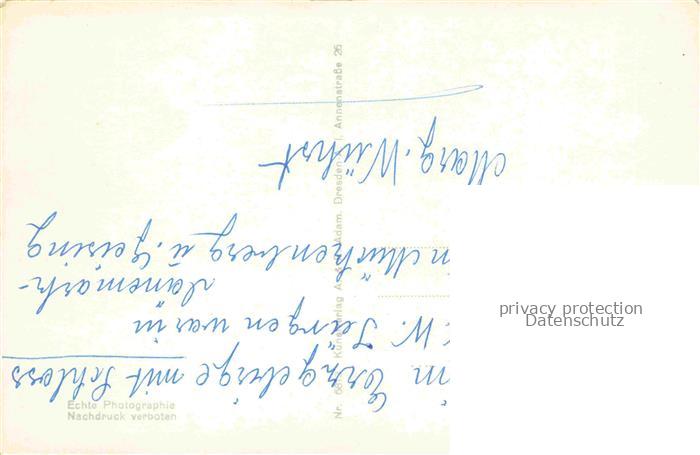 m Erzgebirge mit Schloss
W. Jürgen war in
Dänemark
n Mückenberg u. Geising
Marg. Wührst
Echte Photographie
Nachdruck verboten
Kunstverlag
Adam. Dresden
Annenstraße 26
privacy protection
Datenschutz